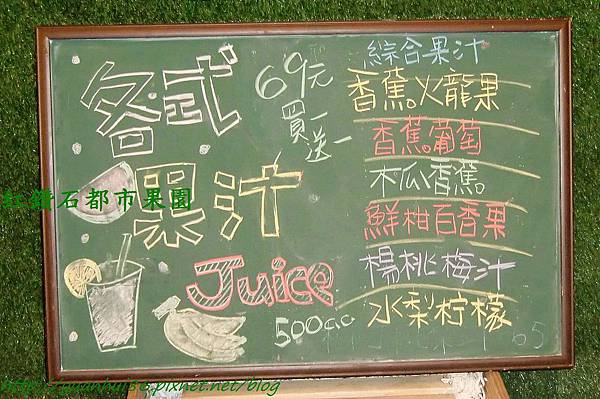 各式
果汁
Juice
500c.c
69元
買一
送一
綜合果汁
香蕉火龍果
香蕉葡萄
木瓜香蕉
鮮柑百香果
楊桃梅汁
水梨柠檬
65
紅鑽石都市果園
http://yuanhui58.pixnet.net/blog